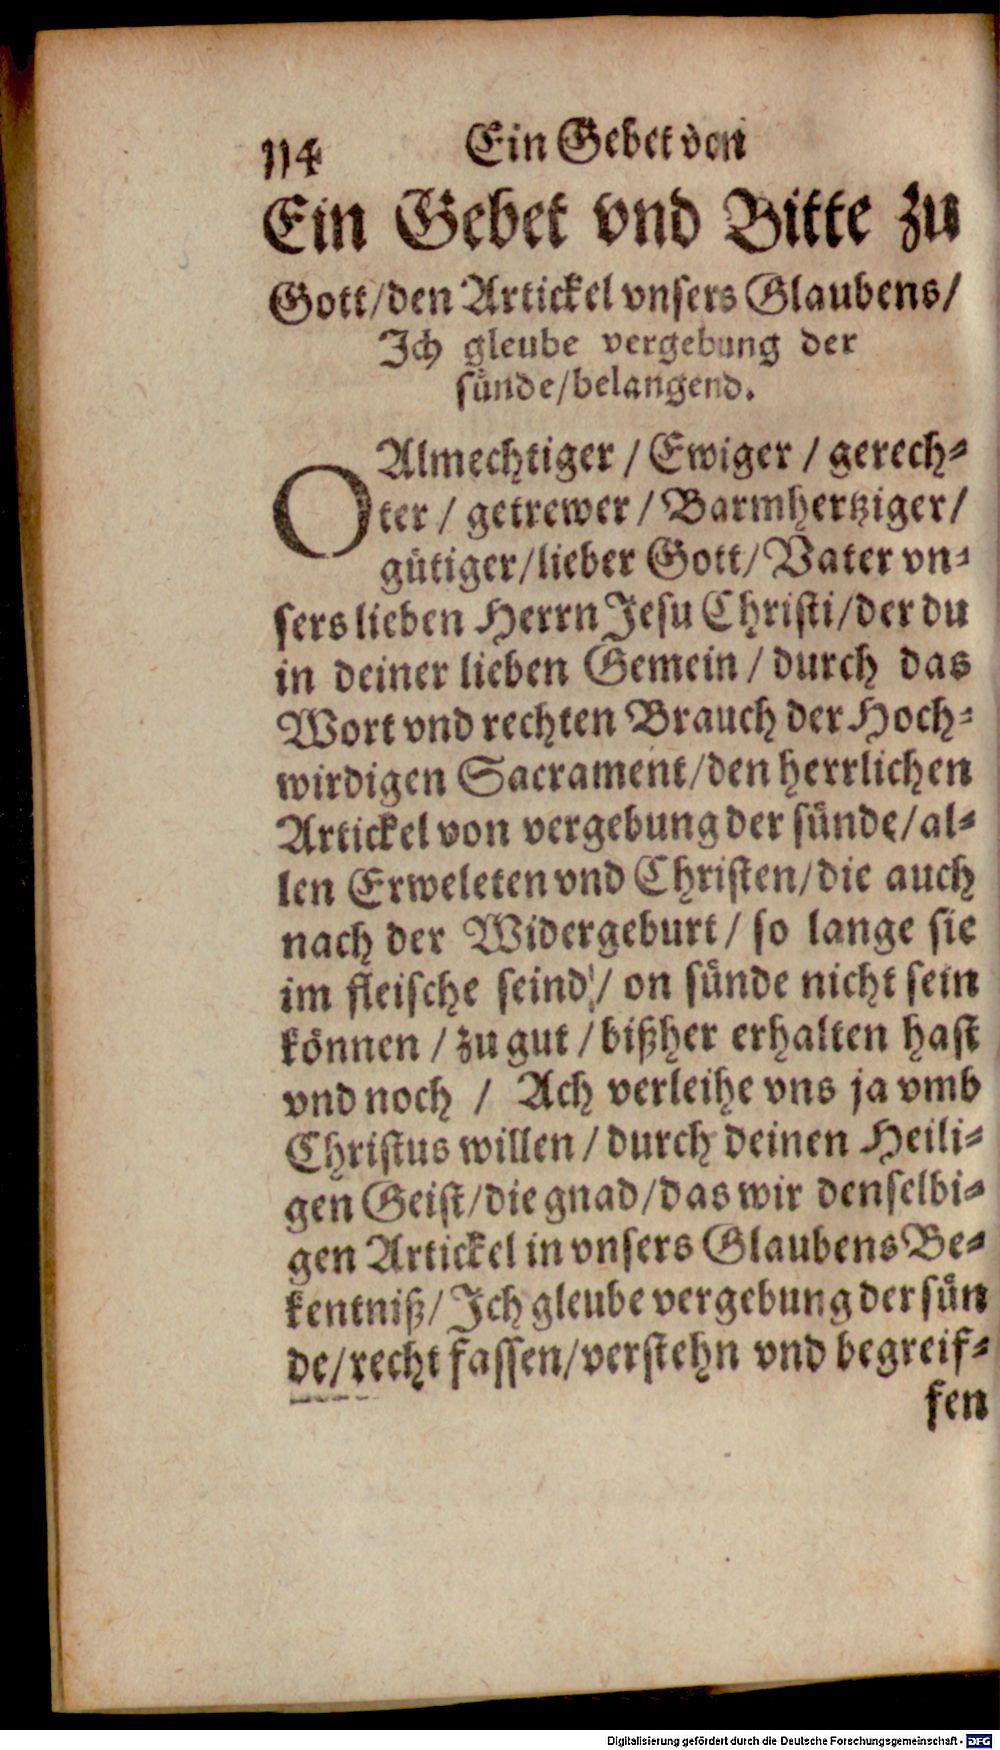 114 Ein Gebet von
Ein Gebet vnd Bitte zu
Gott/den Artickel vnsers Glaubens/
Ich gleube vergebung der
sünde/belangend.
O Almechtiger / Ewiger / gerech⸗
ter / getrewer / Barmhertziger/
gütiger/lieber Gott/ Vater vn⸗
sers lieben Herrn Jesu Christi/der du
in deiner lieben Gemein / durch das
Wort vnd rechten Brauch der Hoch⸗
wirdigen Sacrament/den herrlichen
Artickel von vergebung der sünde/al⸗
len Erweleten vnd Christen/die auch
nach der Widergeburt / so lange sie
im fleische seind / on sünde nicht sein
können / zu gut / bißher erhalten hast
vnd noch / Ach verleihe vns ja vmb
Christus willen / durch deinen Heili⸗
gen Geist/die gnad/das wir denselbi⸗
gen Artickel in vnsers Glaubens Be⸗
kentniß/ Ich gleube vergebung der sün
de/recht fassen/verstehn vnd begreif⸗
fen
Digitalisierung gefördert durch die Deutsche Forschungsgemeinschaft - DFG